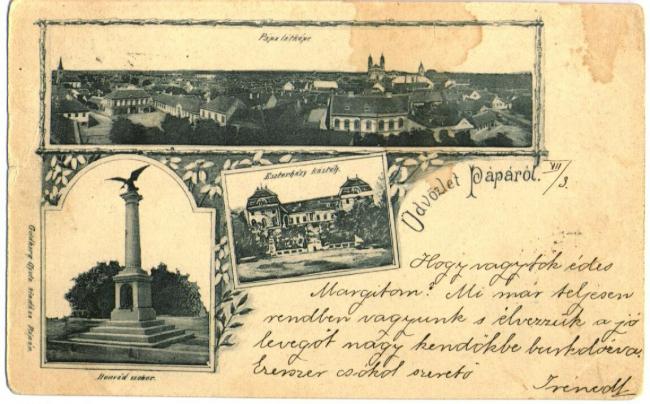 Pápa látképe
Eszterházy kastély.
Üdvözlet Pápáról.
VII/3.
Honvéd szobor.
Goldberg Gyula kiadása Pápán
Hogy vagytok édes
Margitom? Mi már teljesen
rendben vagyunk s élvezzük a jó
levegőt nagy kendőkbe burkolózva.
Ezerszer csókol szerető
Iréned